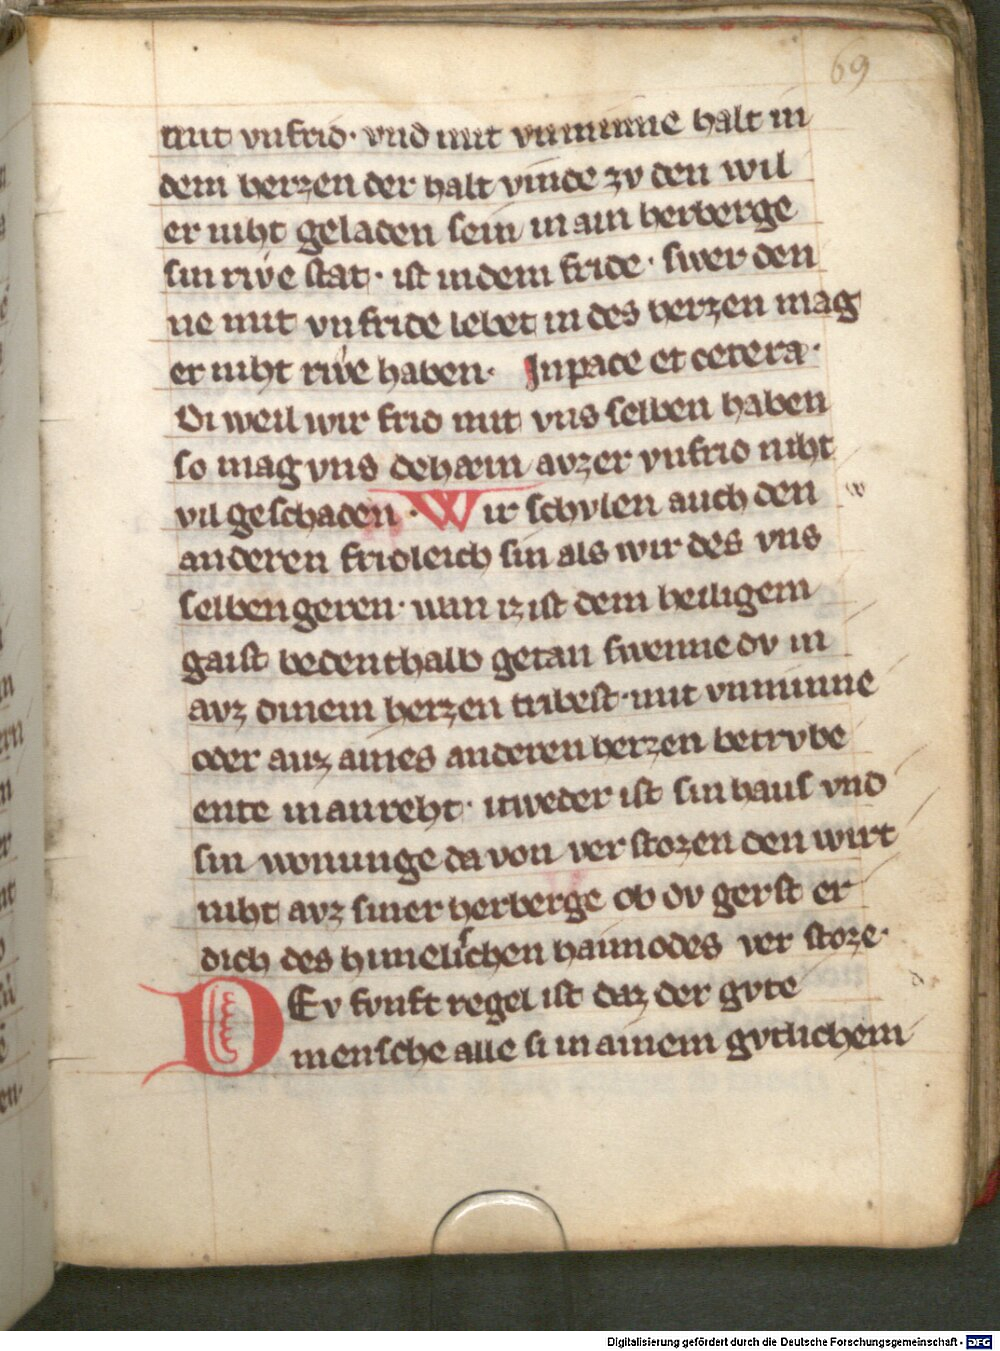 69
mit vnfrid · vnd mit vnminne halt in
dem herzen der halt vinde zv den wil
er niht geladen sein in ain herberge
sin rwe stat · ist in dem fride · swer den
ne mit vnfride lebet in des herzen mag
er niht rwe haben · In pace et cetera ·
Di weil wir frid mit vns selben haben
so mag vns dehaein avzer vnfrid niht
vil geschaden · Wir schvlen auch den
w
anderen fridleich sin als wir des vns
selben geren · wan iz ist dem heiligem
gaist bedenthalb getan swenne dv in
avz dinem herzen tribest · mit vnminne
oder auz aines anderen herzen betrvbe
ente in an reht · itweder ist sin haus vnd
sin wonunge da von ver stozen den wirt
niht avz siner herberge ob dv gerst er
dich des himelischen haimodes ver stoze ·
DEv funft regel ist daz der gvte
mensche alle si in ainem gvtlichem
Digitalisierung gefördert durch die Deutsche Forschungsgemeinschaft - DFG